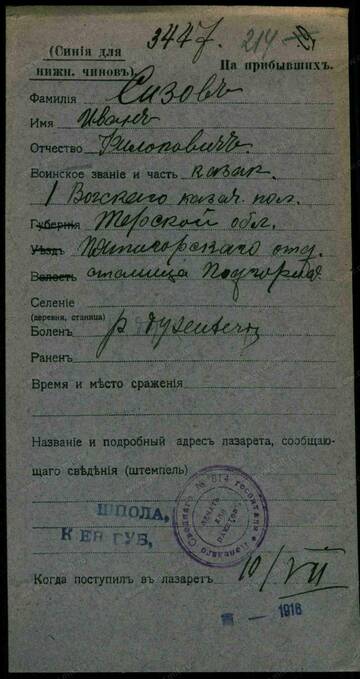 3447. 214
(Синія для
нижн. чиновъ).
На прибывшихъ.
Фамилія Сизовъ
Имя Иванъ
Отчество Филоповичъ
Воинское званіе и часть казак.
1 Вогскаго казач. пол.
Губернія Терской обл.
Уѣздъ Пятигорскаго отд.
Волость станица Подгорная
Селеніе
(деревня, станица)
Боленъ
Раненъ
Время и мѣсто сраженія
Названіе и подробный адресъ лазарета, сообщаю-
щаго свѣдѣнія (штемпель)
ШПОЛА,
КІЕВ ГУБ,
своднаго № 614 госпиталя
Когда поступилъ въ лазаретъ 10/VII
1916